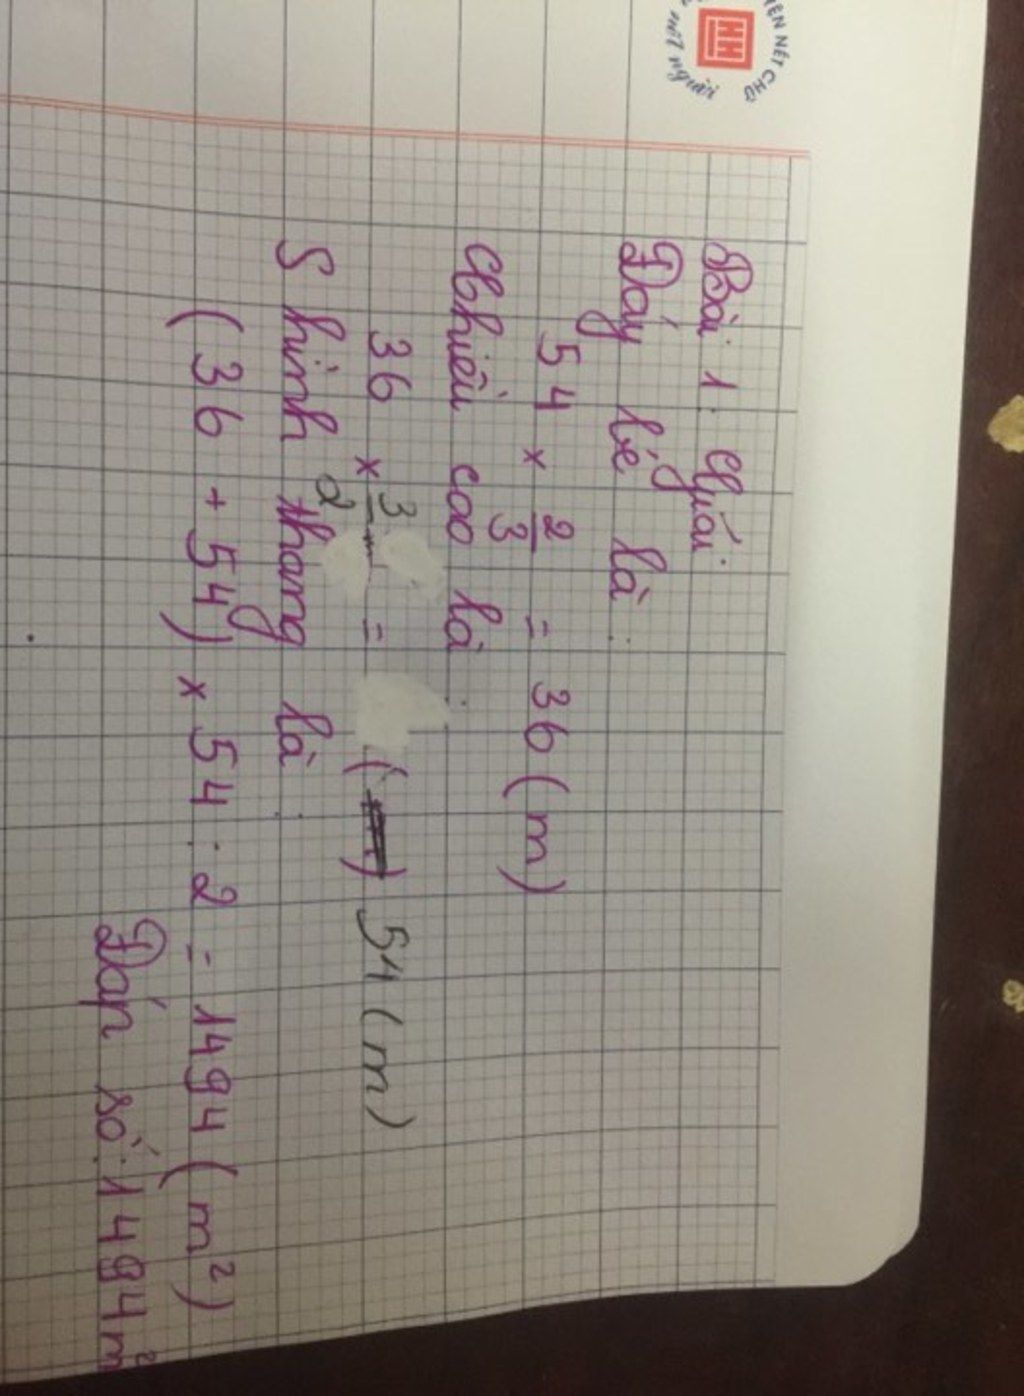 ỆN NÉT CHỮ
HH
nết người
Bài 1. Giải
Đáy bé là:
54 × 2/3 = 36 (m)
Chiều cao là:
36 × 3/2 = 54 (m)
S hình thang là:
(36 + 54) × 54 : 2 = 1494 (m²)
Đáp số: 1494m²